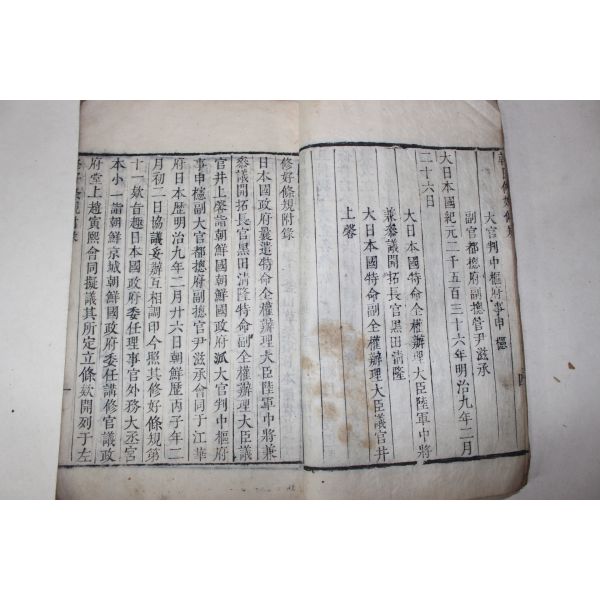 大官判中樞府事申櫶
副官都摠府副摠管尹滋承
大日本國紀元二千五百三十六年明治九年二月
二十六日
大日本國特命全權辦理大臣陸軍中將
兼參議開拓長官黑田清隆
大日本國特命副全權辦理大臣議官井
上馨
四
修好條規附錄
日本國政府曩遣特命全權辦理大臣陸軍中將兼
參議開拓長官黑田清隆特命副全權辦理大臣議
官井上馨詣朝鮮國朝鮮國政府派大官判中樞府
事申櫶副大官都摠府副摠官尹滋承會同于江華
府日本歷明治九年二月廿六日朝鮮歷丙子年二
月初二日協議妥辦互相調印今照其修好條規第
十一欵旨趣日本國政府委任理事官外務大丞宮
本小一詣朝鮮京城朝鮮國政府委任講修官議政
府堂上趙寅熙會同擬議其所定立條欵開列于左
一